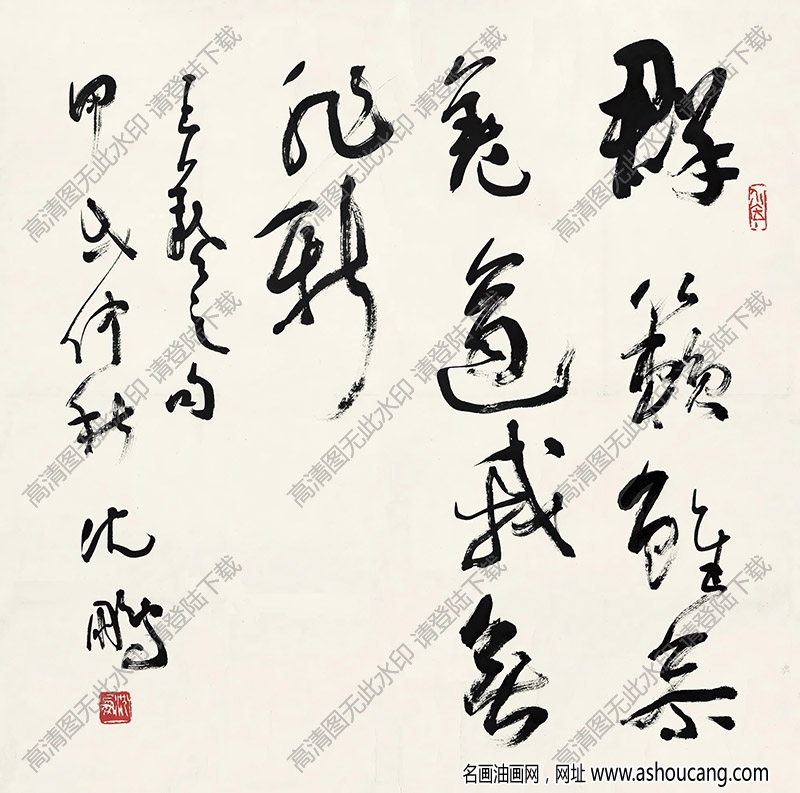 群籟雖參
差適我無
非新
王羲之句
甲戌仲秋 沈鵬
高清图无此水印 请登陆下载
高清图无此水印 请登陆下载
高清图无此水印 请登陆下载
高清图无此水印 请登陆下载
高清图无此水印 请登陆下载
高清图无此水印 请登陆下载
高清图无此水印 请登陆下载
高清图无此水印 请登陆下载
高清图无此水印 请登陆下载
名画油画网，网址 www.ashoucang.com